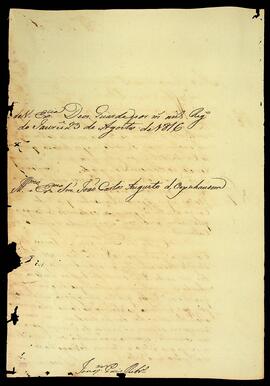 a V. Ex.cia Deos Guarde por m.s an.s Rio
de Janeiro 23 de Agosto de 1816
Ill.mo e Ex.mo Snr. João Carlos Augusto d'Oeynhausen